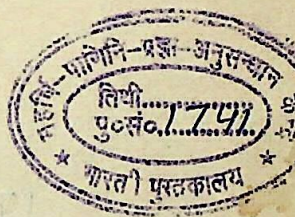 महर्षि-पाणिनि-प्रज्ञा-अनुसन्धान
तिथी..................
पु०सं०.1741.
★ भारती पुस्तकालय ★